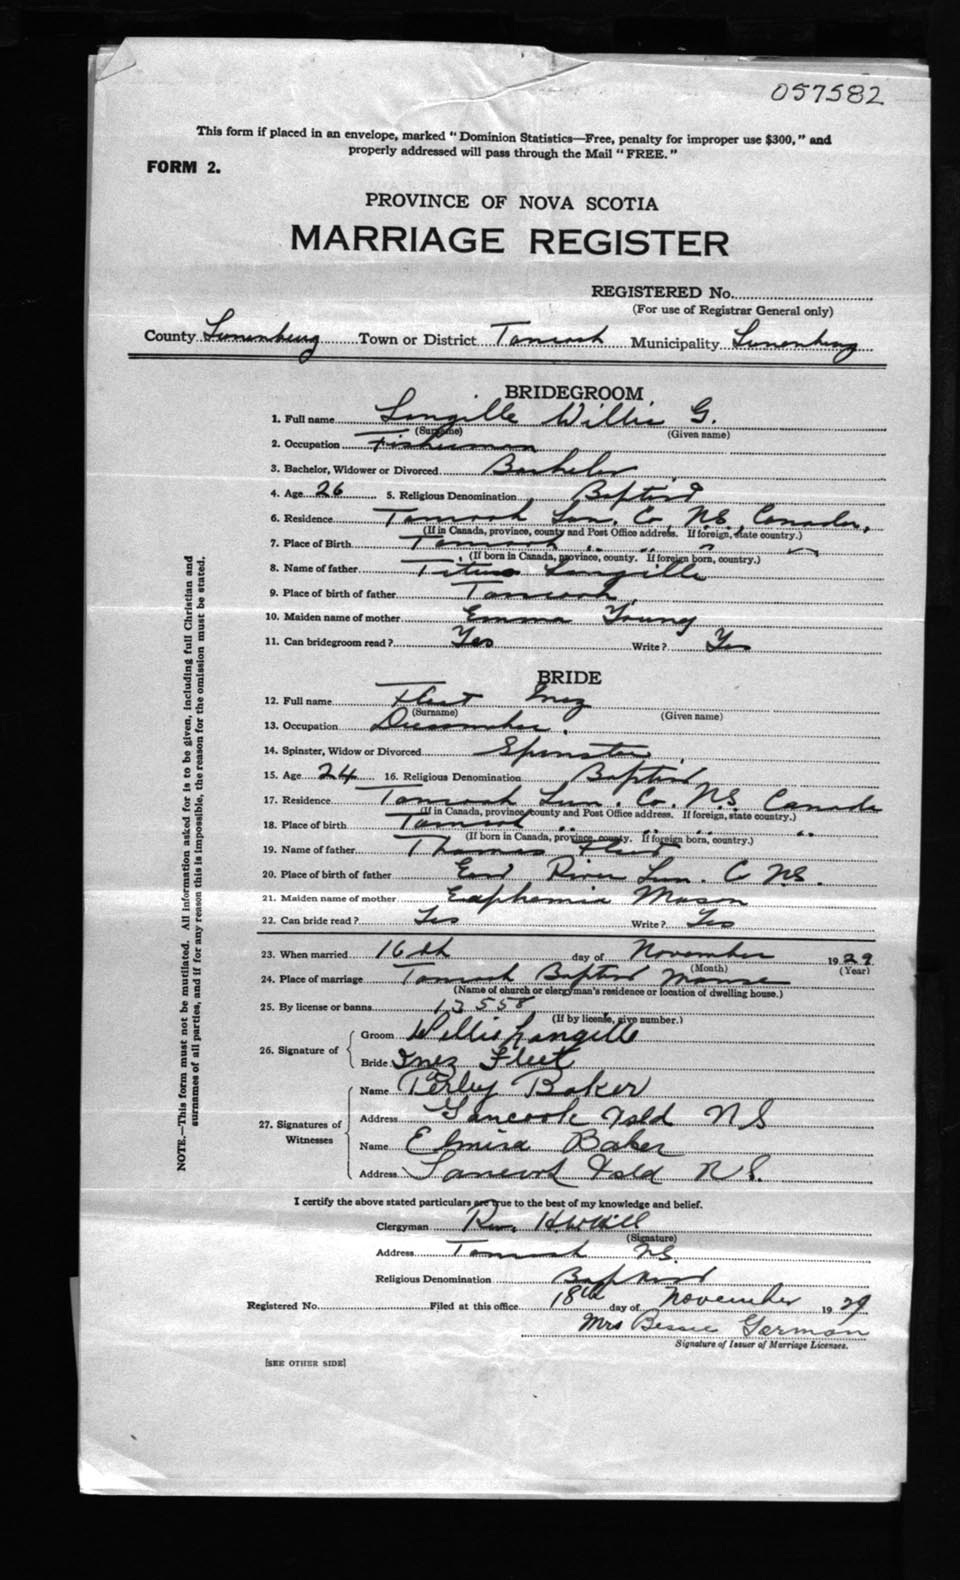 057582
This form if placed in an envelope, marked "Dominion Statistics—Free, penalty for improper use $300," and
properly addressed will pass through the Mail "FREE."
FORM 2.
PROVINCE OF NOVA SCOTIA
MARRIAGE REGISTER
REGISTERED No.
(For use of Registrar General only)
County Lunenburg Town or District Tancook Municipality Lunenburg
BRIDEGROOM
1. Full name Langille Willis G.
(Surname) (Given name)
2. Occupation Fisherman
3. Bachelor, Widower or Divorced Bachelor
4. Age 26 5. Religious Denomination Baptist
6. Residence Tancook Lun. Co, N.S., Canada,
(If in Canada, province, county and Post Office address. If foreign, state country.)
7. Place of Birth Tancook " " "
(If born in Canada, province, county. If foreign born, country.)
8. Name of father Titus Langille
9. Place of birth of father Tancook
10. Maiden name of mother Emma Young
11. Can bridegroom read? Yes Write? Yes
BRIDE
12. Full name Fleet Inez
(Surname) (Given name)
13. Occupation Dressmaker.
14. Spinster, Widow or Divorced Spinster
15. Age 24 16. Religious Denomination Baptist
17. Residence Tancook Lun. Co. N.S. Canada
(If in Canada, province, county and Post Office address. If foreign, state country.)
18. Place of birth Tancook " " " "
(If born in Canada, province, county. If foreign born, country.)
19. Name of father Thomas Fleet
20. Place of birth of father East River Lun. Co N.S.
21. Maiden name of mother Euphemia Mason
22. Can bride read? Yes Write? Yes
23. When married 16th day of November 1929
(Month) (Year)
24. Place of marriage Tancook Baptist Manse
(Name of church or clergyman's residence or location of dwelling house.)
25. By license or banns 13558
(If by license, give number.)
26. Signature of
Groom Willis Langille
Bride Inez Fleet
27. Signatures of Witnesses
Name Perley Baker
Address Tancook Isld N S
Name Elmira Baker
Address Tancook Isld N S.
I certify the above stated particulars are true to the best of my knowledge and belief.
Clergyman Rev.
(Signature)
Address Tancook N.S.
Religious Denomination Baptist
Registered No. Filed at this office 18th day of November 1929
Mrs Bessie German
Signature of Issuer of Marriage Licenses.
[SEE OTHER SIDE]
NOTE.—This form must not be mutilated. All information asked for is to be given, including full Christian and
surnames of all parties, and if for any reason this is impossible, the reason for the omission must be stated.